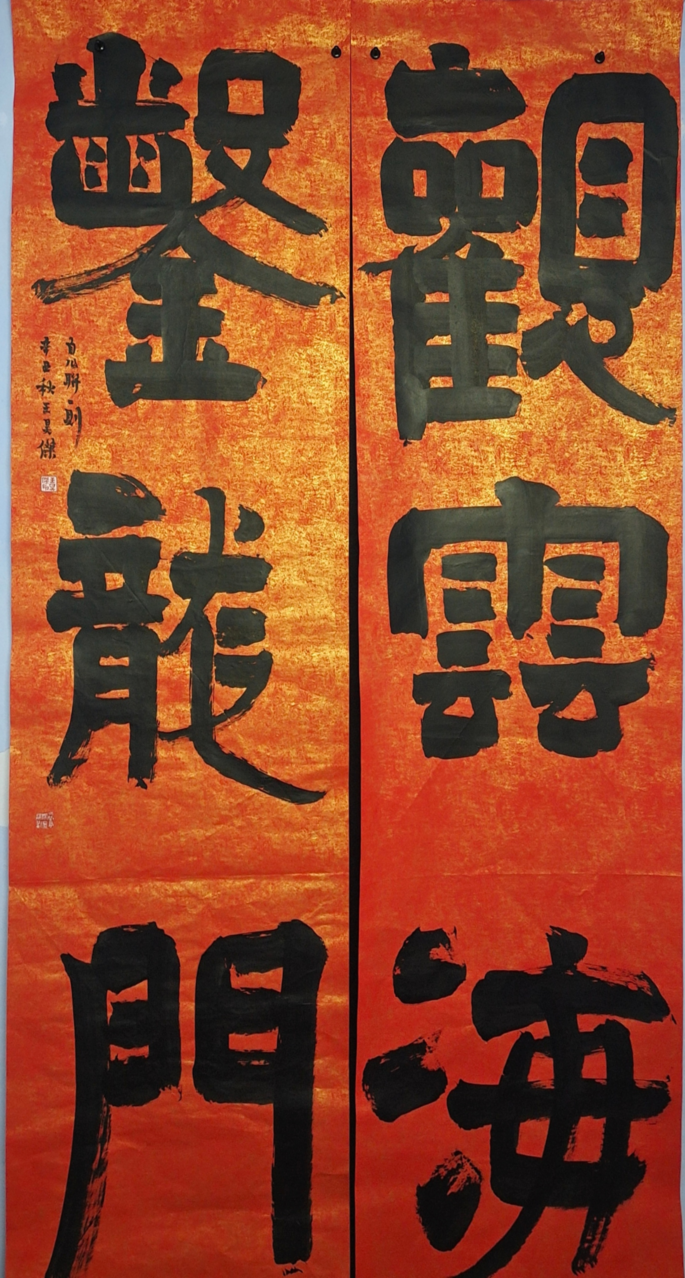 觀雲海
鑿龍門
自 聯一則
辛丑秋王 傑